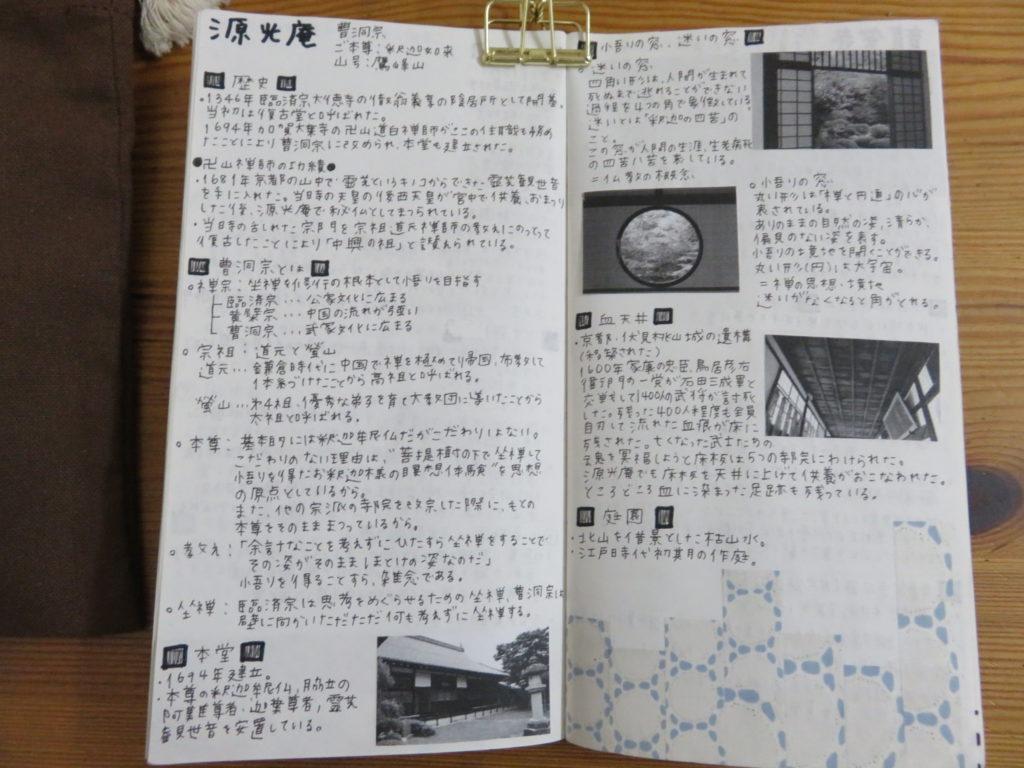 源光庵
曹洞宗
ご本尊：釈迦如来
山号：鷹峰山
歴史
・1346年臨済宗大徳寺の徹翁義亨の隠居所として開基。
当初は復古堂と呼ばれた。
1694年加賀大乗寺の卍山道白禅師がここの住職を務め
たことにより曹洞宗に改められ、本堂も建立された。
●卍山禅師の功績●
・1681年京都の山中で霊芝というキノコからできた霊芝観世音
を手に入れた。当時の天皇の後西天皇が宮中で供養、おまつり
した後、源光庵で秘仏としてまつられている。
・当時の乱れた宗門を宗祖道元禅師の教えにのっとって
復古したことにより「中興の祖」と讃えられている。
曹洞宗とは
○禅宗：坐禅を修行の根本として悟りを目指す
臨済宗…公家文化に広まる
黄檗宗…中国の流れが強い
曹洞宗…武家文化に広まる
○宗祖：道元と瑩山
道元…鎌倉時代に中国で禅を極めて帰国、布教して
体系づけたことから高祖と呼ばれる。
瑩山…第4祖、優秀な弟子を育て大教団に導いたことから
太祖と呼ばれる。
○本尊：基本的には釈迦牟尼仏だがこだわりはない。
こだわりのない理由は、"菩提樹の下で坐禅して
悟りを得たお釈迦様の瞑想体験"を思想
の原点としているから。
また、他の宗派の寺院を改宗した際に、もとの
本尊をそのまままつっているから。
○教え：「余計なことを考えずにひたすら坐禅をすることで
その姿がそのままほとけの姿なのだ」
悟りを得ることすら、雑念である。
○坐禅：臨済宗は思考をめぐらせるための坐禅、曹洞宗は
壁に向かいただただ何も考えずに坐禅する。
本堂
・1694年建立。
・本尊の釈迦牟尼仏、脇立の
阿難尊者・迦葉尊者、霊芝
観世音を安置している。
悟りの窓、迷いの窓
○迷いの窓
四角い形は、人間が生まれて
死ぬまで逃れることができない
過程を4つの角で象徴している。
迷いとは「釈迦の四苦」の
こと。
この窓が人間の生涯、生老病死
の四苦八苦を表している。
＝仏教の概念
○悟りの窓
丸い形は「禅と円通」の心が
表されている。
ありのままの自然の姿、清らか、
偏見のない姿を表す。
悟りの境地を開くことができる。
丸い形(円)は大宇宙。
＝禅の思想・境地
迷いがなくなると角がとれる。
血天井
・京都・伏見桃山城の遺構
(移築された)
1600年家康の忠臣、鳥居彦右
衛門の一党が石田三成軍と
交戦して1400人の武将が討死
した。残った400人程度も全員
自刃して流れた血痕が床に
残された。亡くなった武士たちの
魂を冥福しようと床板は5つの寺院にわけられた。
源光庵でも床板を天井に上げて供養がおこなわれた。
ところどころ血に染まった足跡も残っている。
庭園
・北山を借景とした枯山水。
・江戸時代初期の作庭。